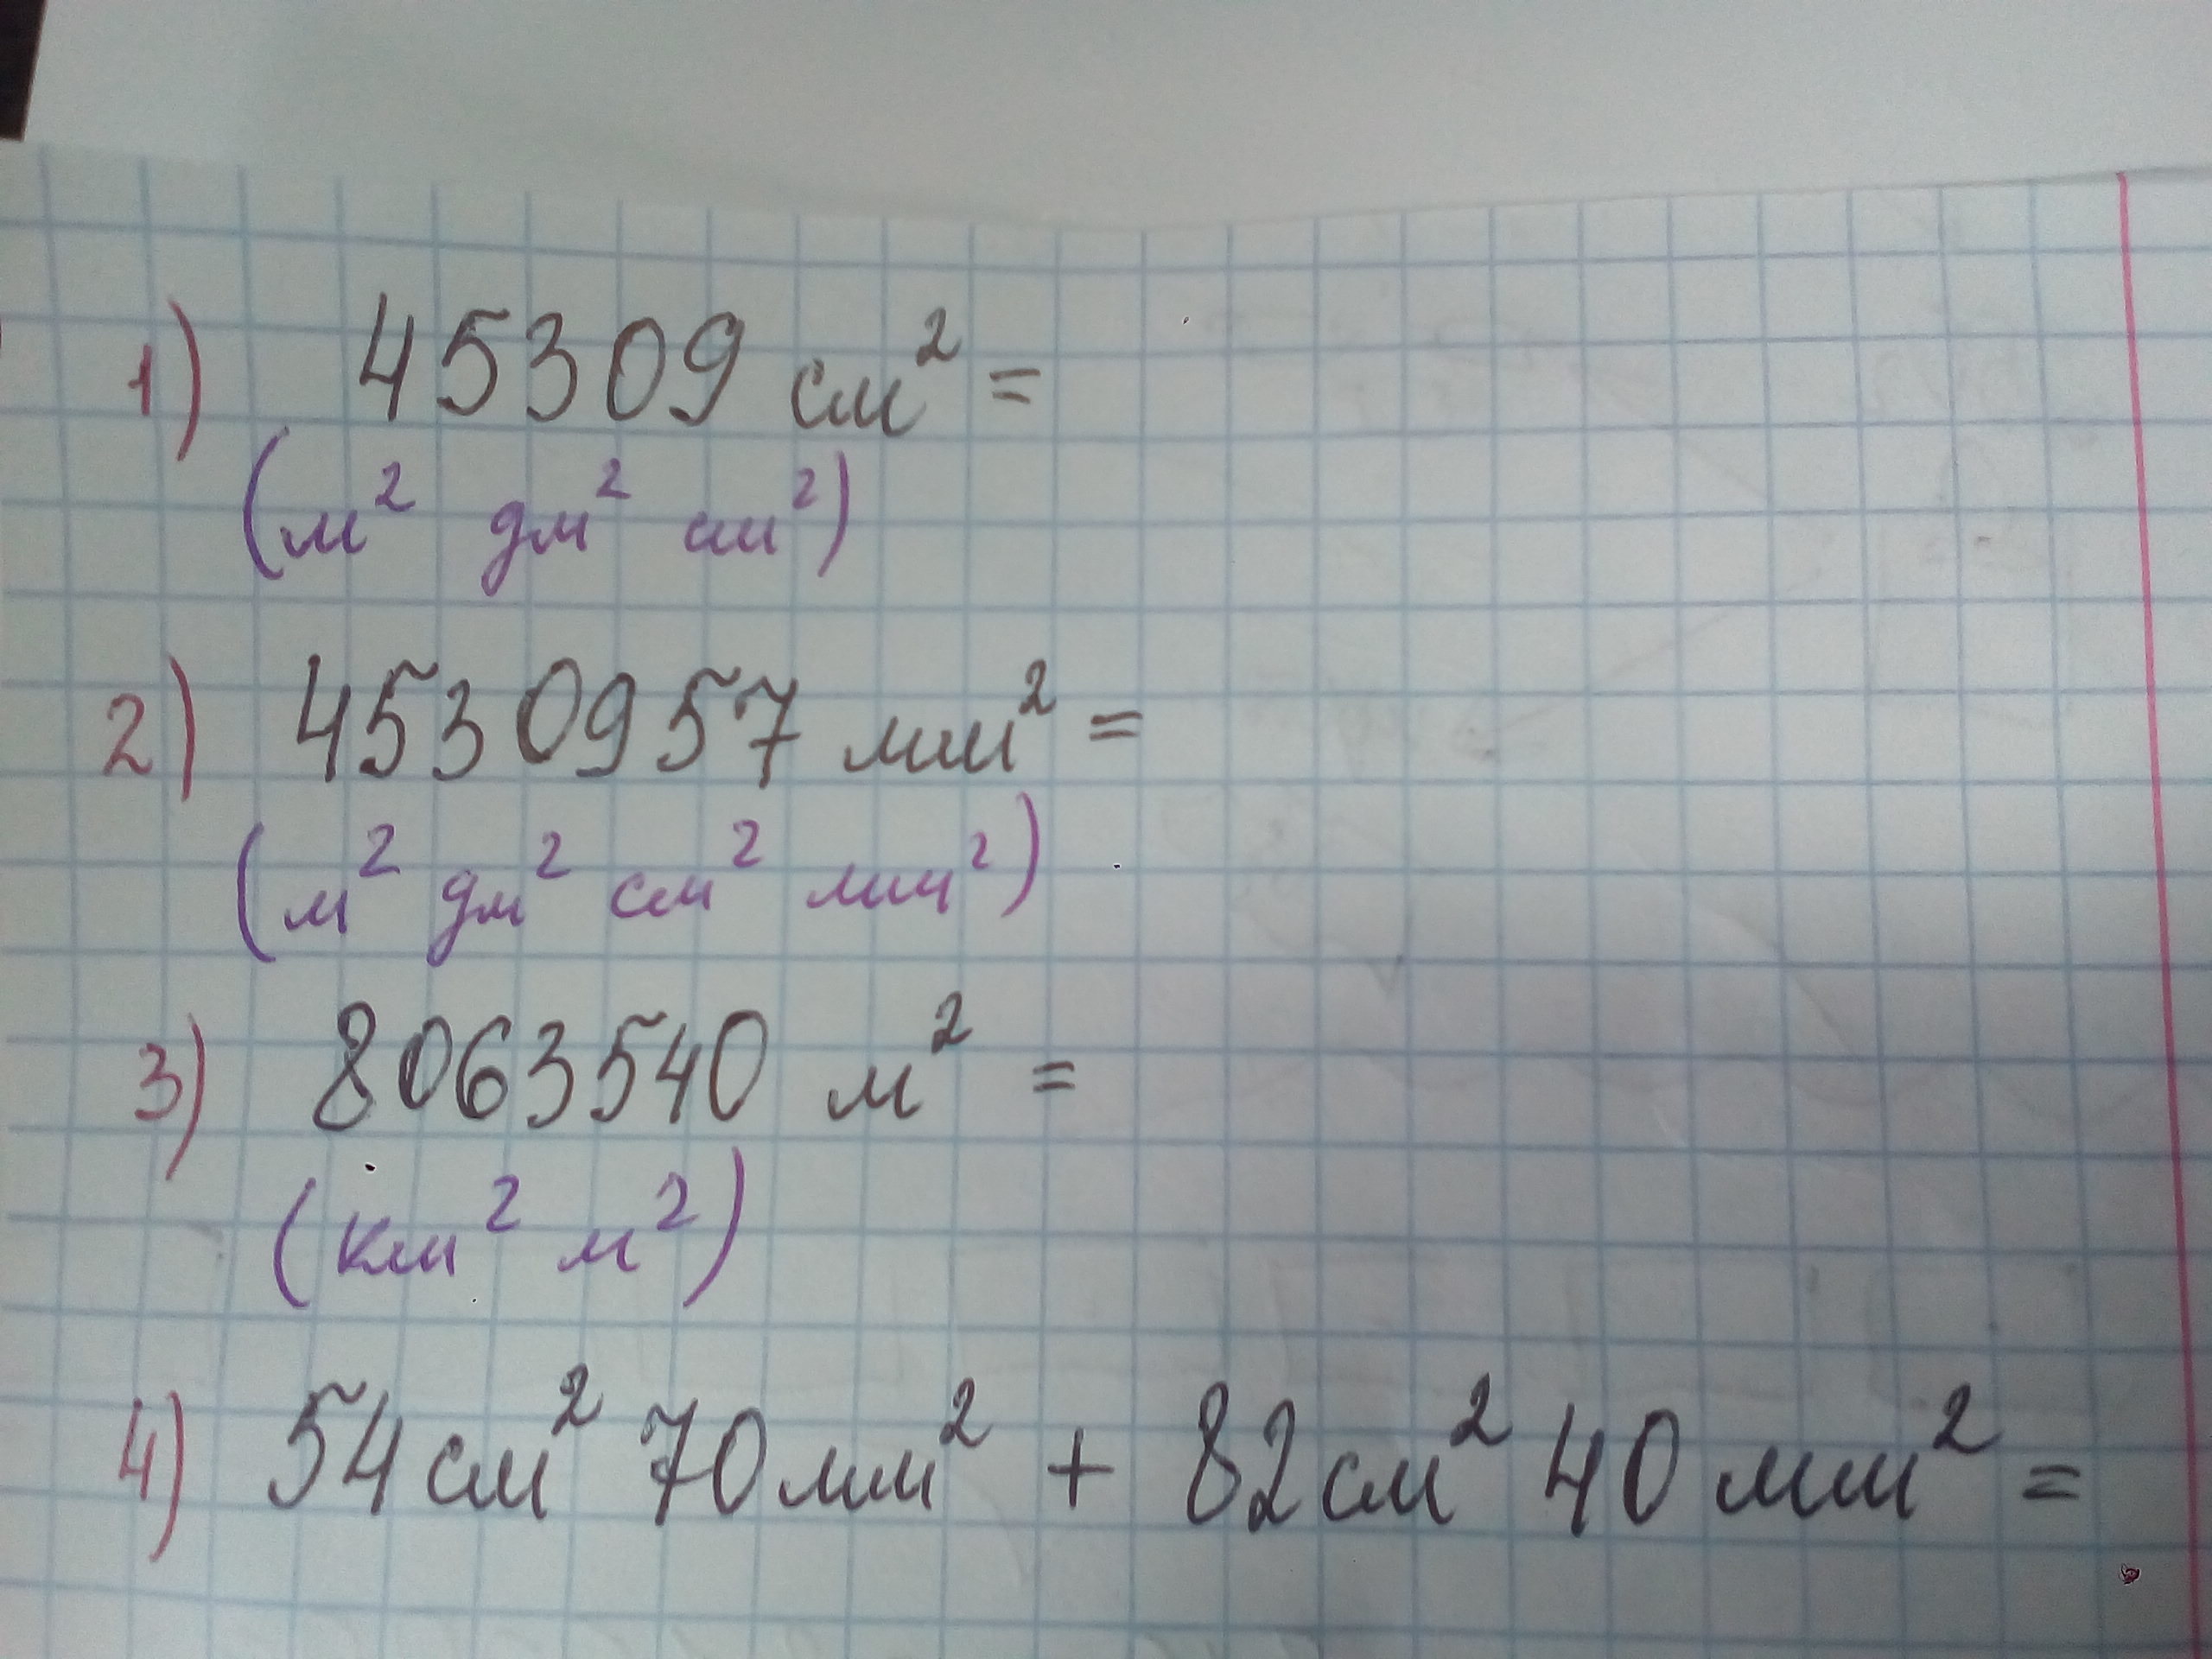 1) 45309 см² =
(м² дм² см²)
2) 4530957 мм² =
(м² дм² см² мм²)
3) 8063540 м² =
(км² м²)
4) 54 см² 70 мм² + 82 см² 40 мм² =